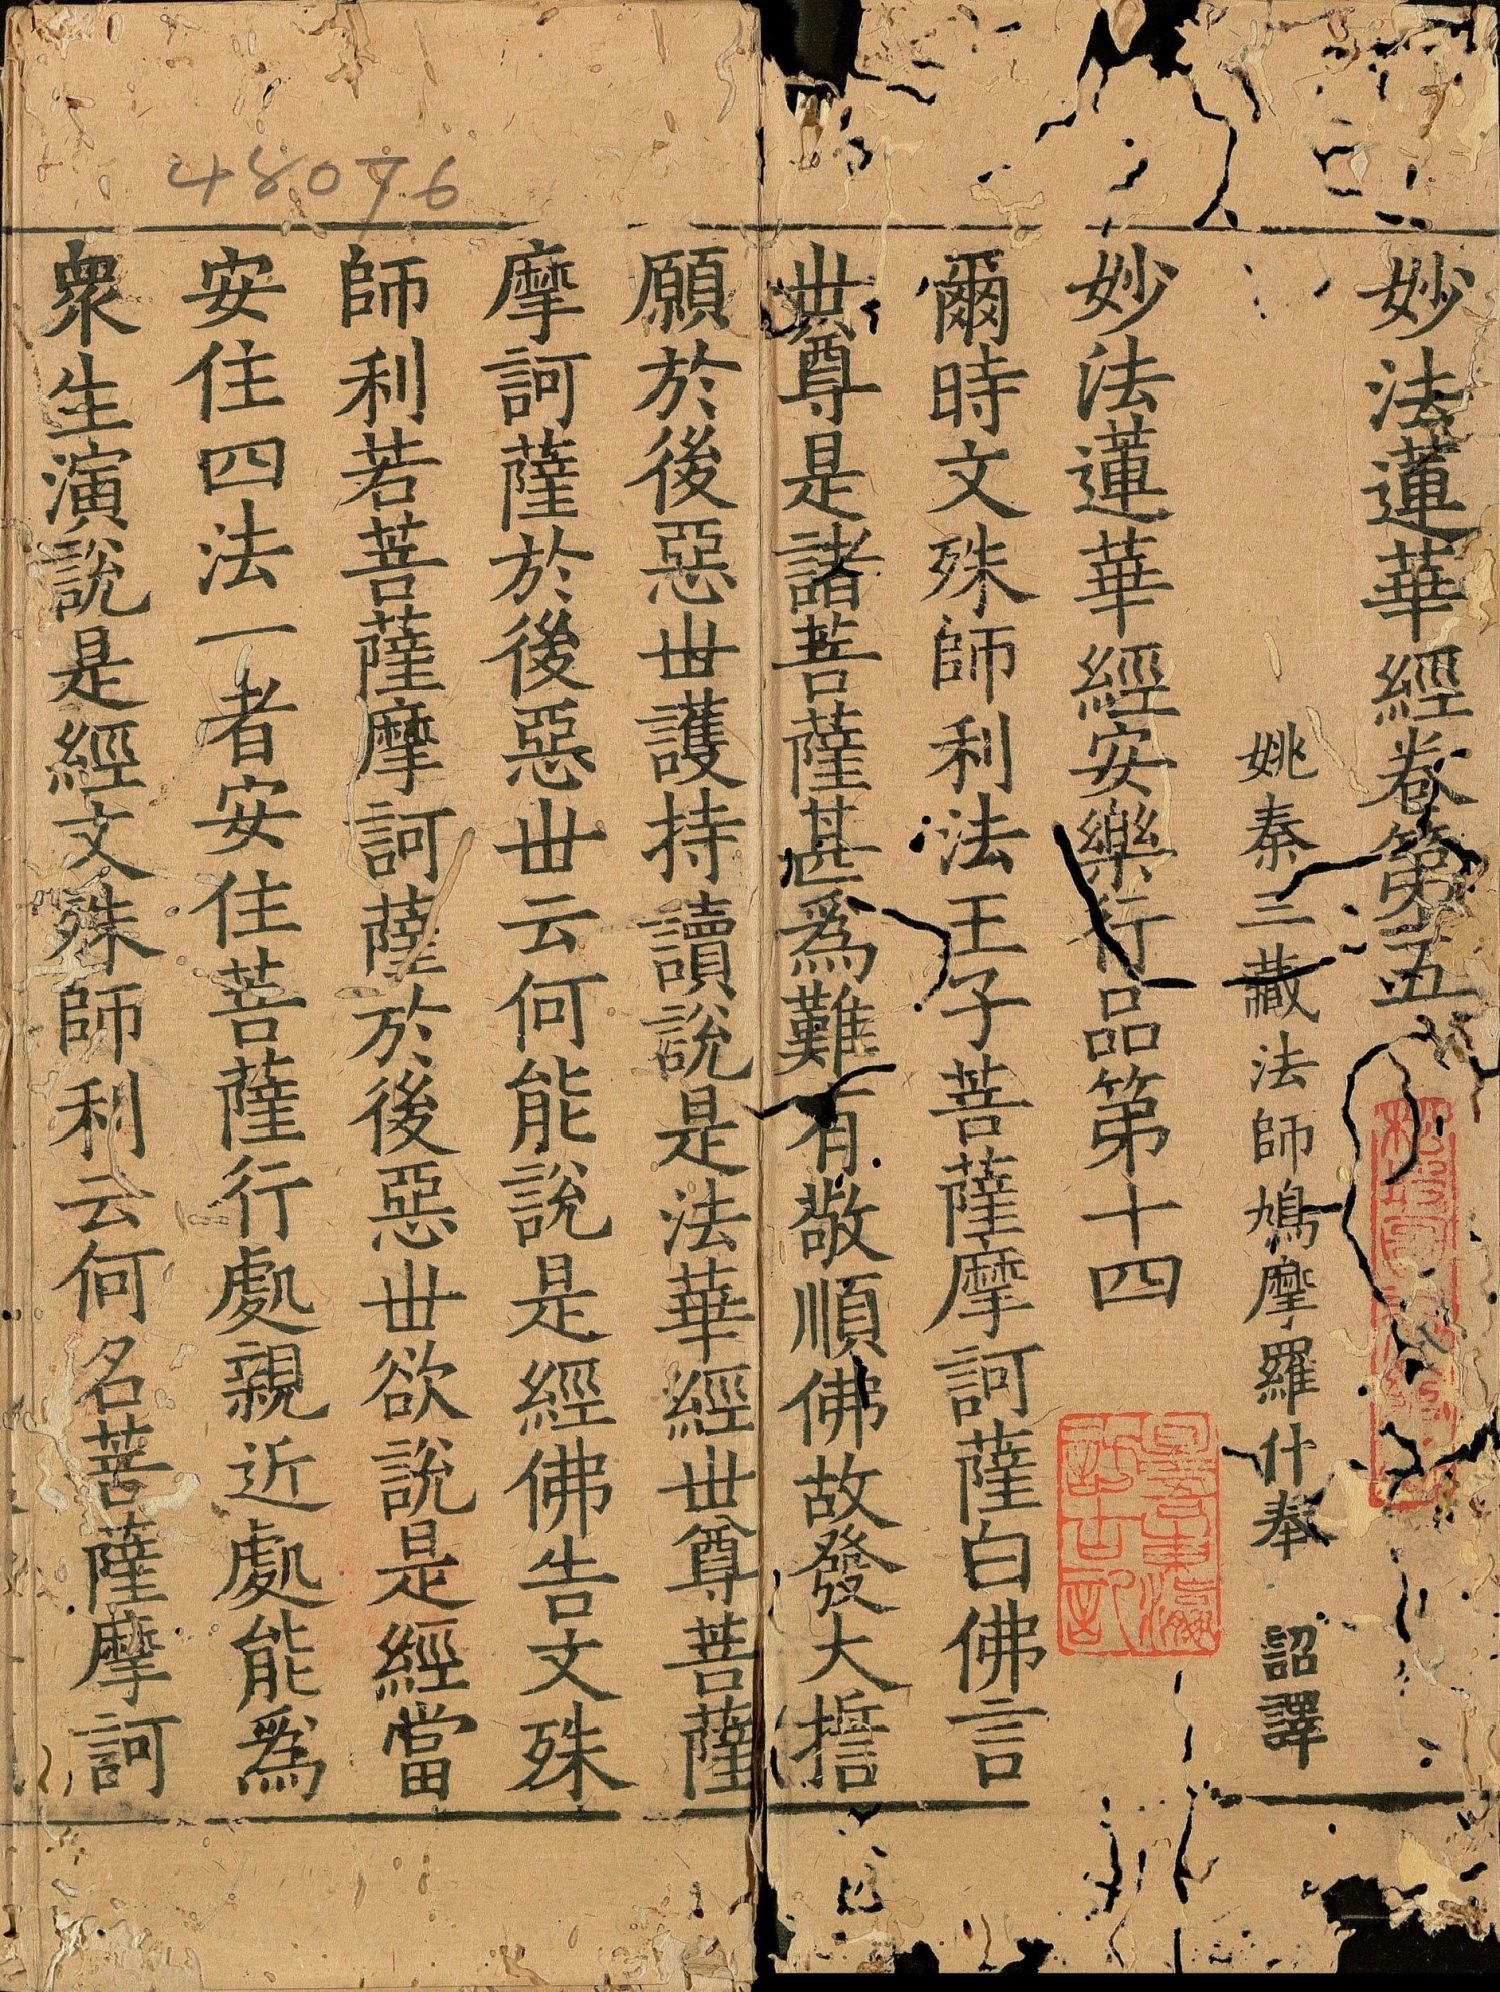 妙法蓮華經卷第五
姚秦三藏法師鳩摩羅什奉 詔譯
妙法蓮華經安樂行品第十四
爾時文殊師利法王子菩薩摩訶薩白佛言
世尊是諸菩薩甚爲難有敬順佛故發大誓
願於後惡世護持讀說是法華經世尊菩薩
摩訶薩於後惡世云何能說是經佛告文殊
師利若菩薩摩訶薩於後惡世欲說是經當
安住四法一者安住菩薩行處親近處能爲
衆生演說是經文殊師利云何名菩薩摩訶
48076